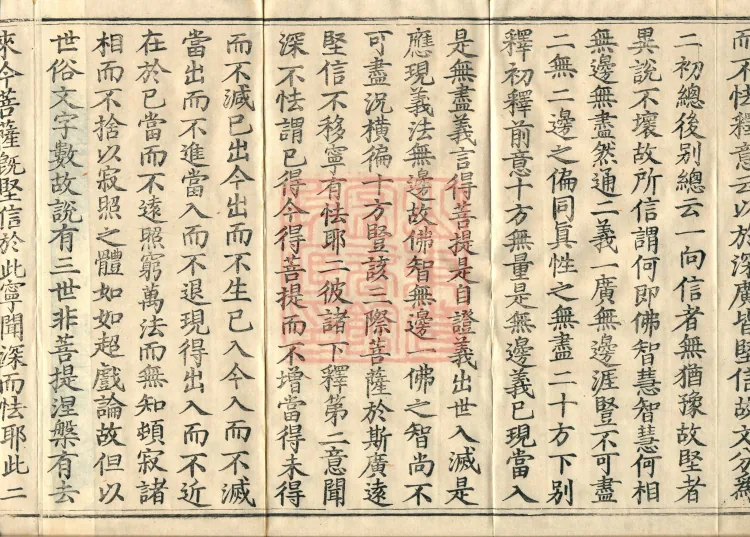 而不怯釋意云以於深廣皆堅信故文分爲
二初總後別總云一向信者無猶豫故堅者
異說不壞故所信謂何即佛智慧智慧何相
無邊無盡然通二義一廣無邊涯豎不可盡
二無二邊之偏同眞性之無盡二十方下別
釋初釋前意十方無量是無邊義已現當入
是無盡義言得菩提是自證義出世入滅是
應現義法無邊故佛智無邊一佛之智尚不
可盡況橫徧十方豎該三際菩薩於斯廣遠
堅信不移寧有怯耶二彼諸下釋第二意聞
深不怯謂已得今得菩提而不增當得未得
而不減已出今出而不生已入今入而不滅
當出而不進當入而不退現得出入而不近
在於已當而不遠照窮萬法而無知頓寂諸
相而不捨以寂照之體如如超戲論故但以
世俗文字數故說有三世非菩提涅槃有去
來今菩薩旣堅信於此寧聞深而怯耶此二